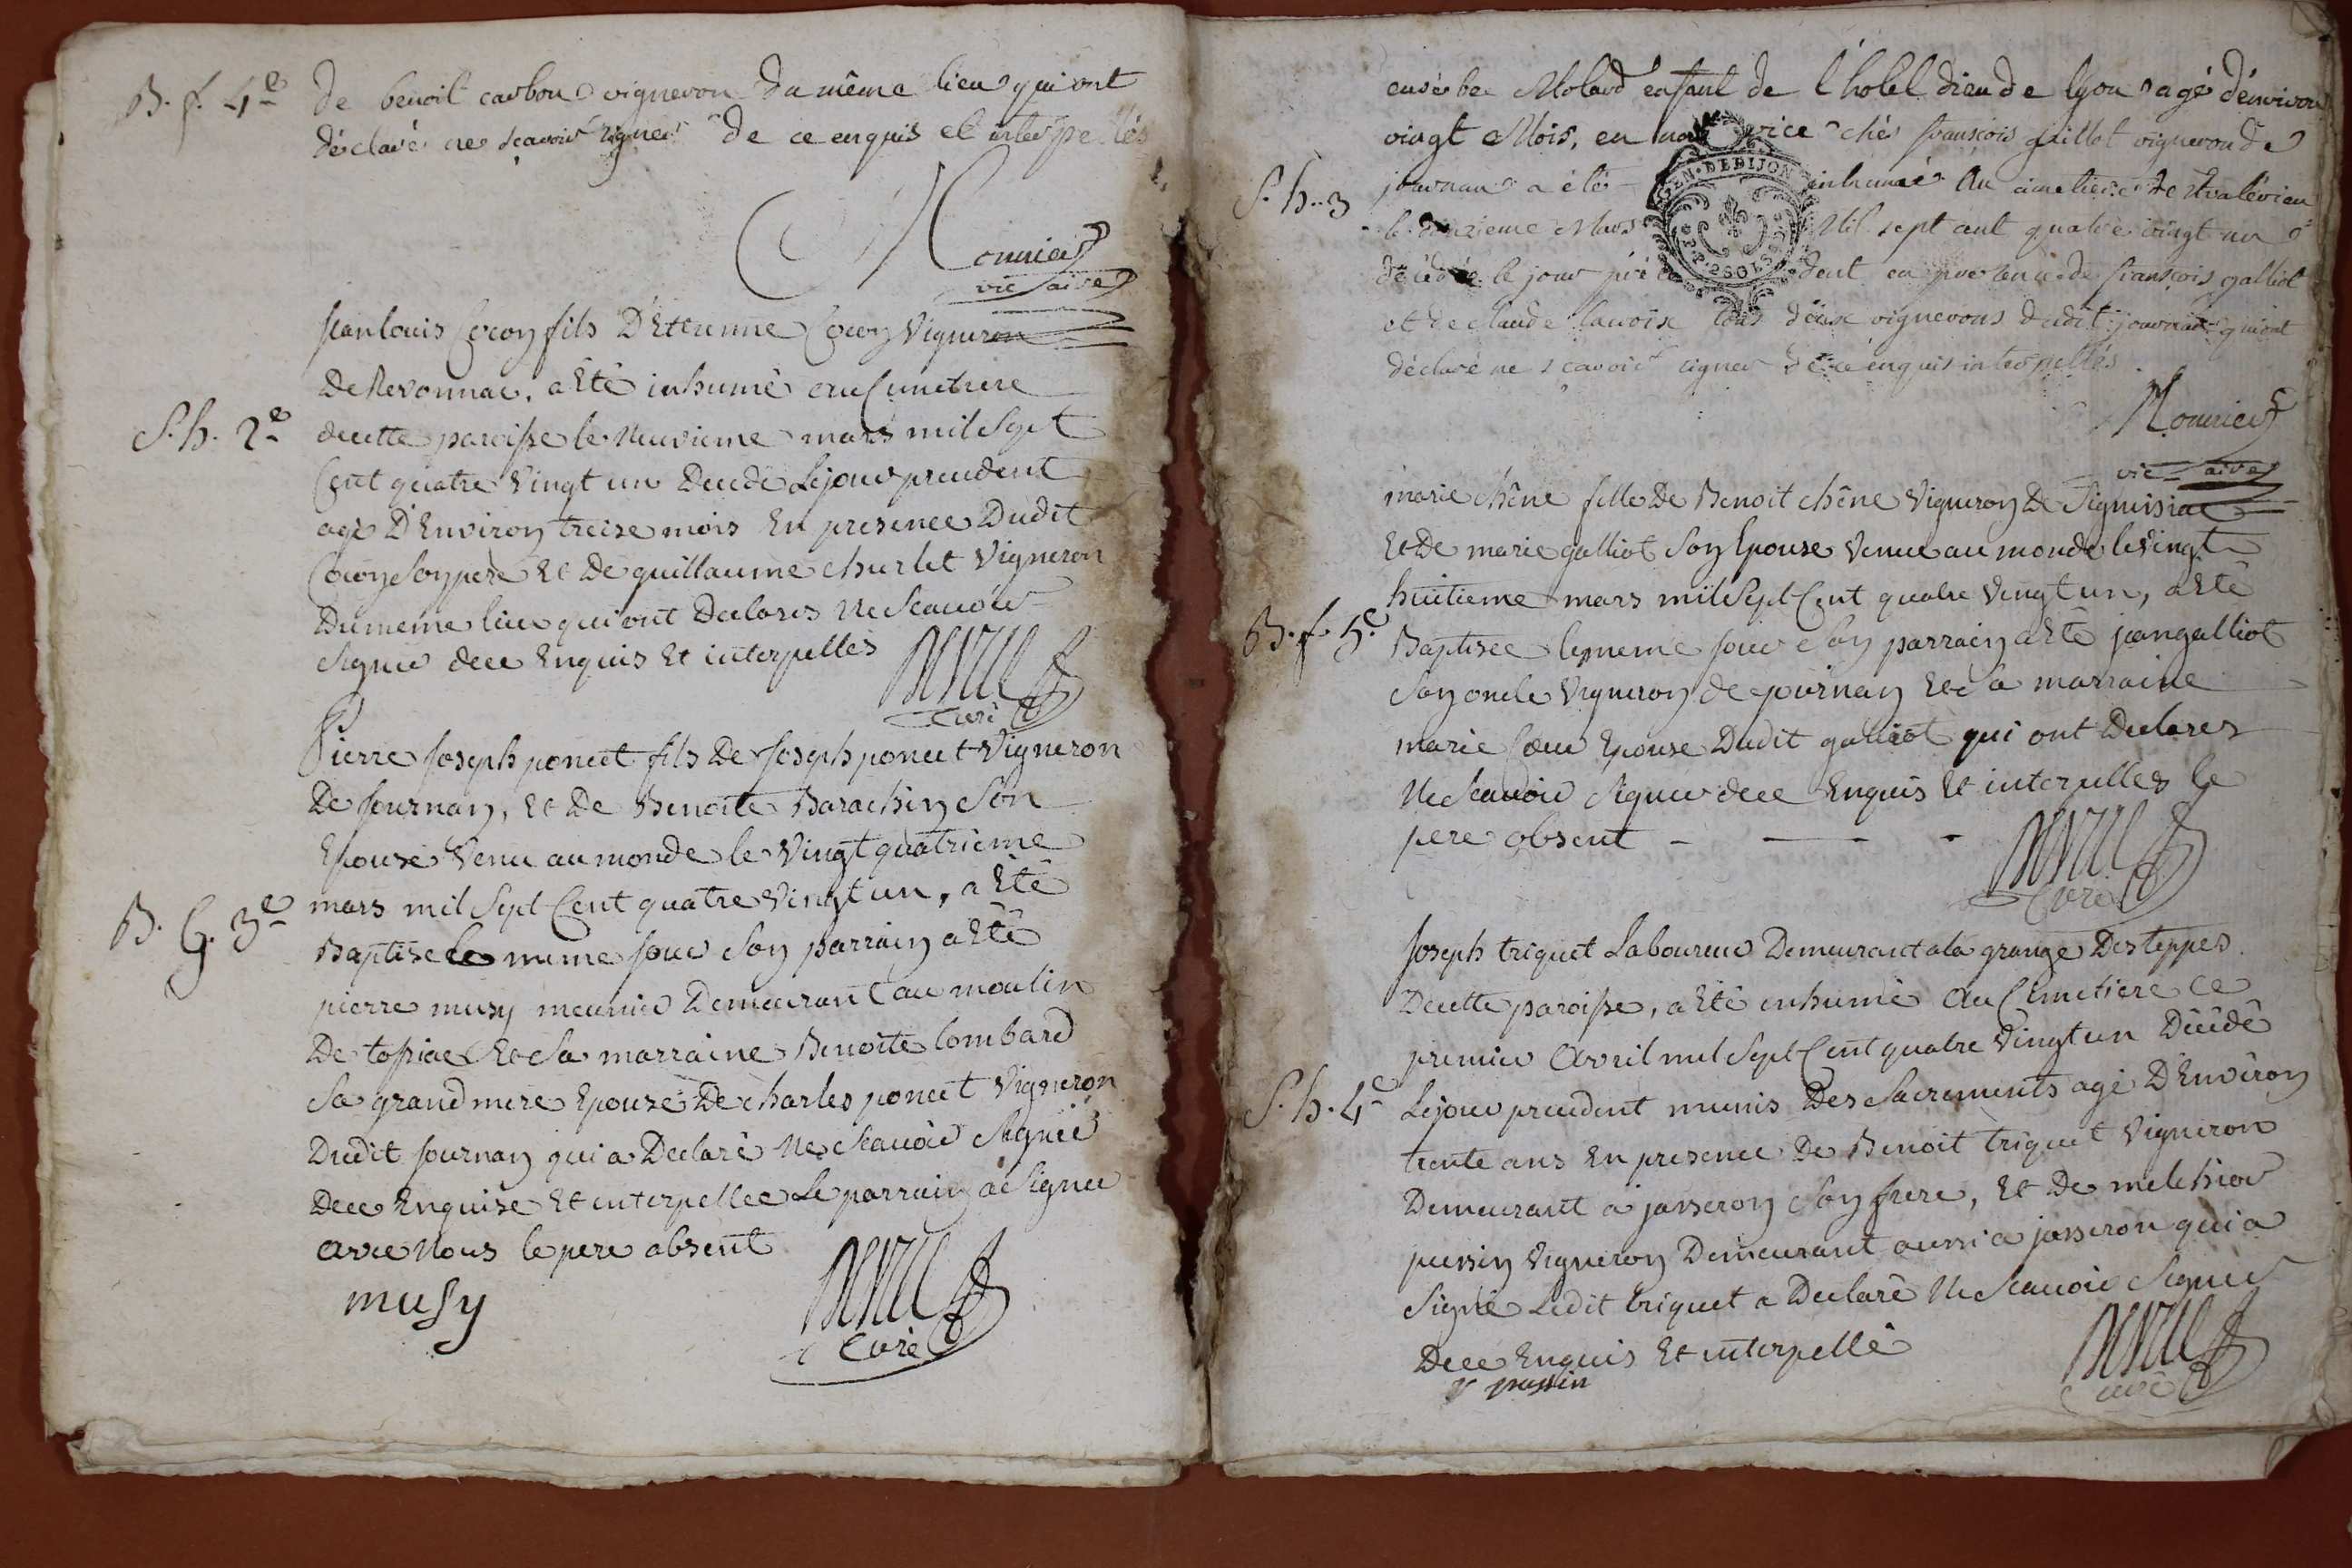 B. f. 4e
de benoit carbon vigneron du même lieu qui ont
déclaré ne sçavoir signer de ce enquis et interpellés
Monnier
vicaire
Jean louis Cocoz fils D'Ettienne Cocoz Vigneron
De Revonnac, a Eté inhumé au Cimetiere
S. h. 2e
decette paroisse le Neuvieme mars mil Sept
Cent quatre Vingt un Decedé Lejour precedent
agé D'Environ treise mois En presence Dudit
Cocoz Son pere Et De guillaume churlet Vigneron
Dumeme lieu qui ont Declarés Ne Scauoir
Signer dece Enquis Et interpellés
Curé
Pierre Joseph poncet fils De Joseph poncet Vigneron
De Journan, Et De Benoite Barachin Son
Epouse Venu au monde le Vingt quatrieme
B. G. 3e
mars mil Sept Cent quatre Vingt un, a Eté
Baptisé le meme jour Son parrain a Eté
pierre musy meunier Demeurant au moulin
De tossiac Et Sa marraine Benoite lombard
Sa grand mere Epouse De charles poncet Vigneron
Dudit Journan qui a Declaré Ne Scauoir Signer
Dece Enquise Et interpellee Le parrain a Signe
avec Nous le pere absent
musy
Curé
Molard enfant de l'hotel dieu de lyon agé d'environ
vingt Mois, en nourice chés francois guillot vigneron de
GEN. DE DIJON
2 SOLS
S. h. 3
journan a été inhumé au cimetiere de st valérien
le Mars Mil sept cent quatre vingt un
décédé le jour précédent en presence de francois galliot
et de claude lacroix tous deux vignerons dudit journan qui ont
déclaré ne sçavoir signer de ce enquis interpellés.
Monnier
vicaire
marie chêne fille De Benoit chêne Vigneron De Signisiac
Et De marie galliot Son Epouse Venue au monde le Vingt
huitieme mars mil Sept Cent quatre Vingt un, a Eté
B. f. 5e
Baptisee le meme jour Son parrain a Eté jean galliot
Son oncle Vigneron de journan Et Sa marraine
marie Coeur Epouse Dudit galliot qui ont Declarez
Ne Scauoir Signer dece Enquis Et interpelles le
pere absent
Curé
Joseph triquet Laboureur Demeurant a la grange Des teppes
Decette paroisse, a Eté inhumé au Cimetiere ce
premier Avril mil Sept Cent quatre Vingt un Décédé
S. h. 4e
Lejour precedent munis Des Sacrements agé D'Environ
trente ans En presence De Benoit triquet Vigneron
Demeurant a jasseron Son frere, Et De melchior
pussin Vigneron Demeurant aussi a jasseron qui a
Signé Ledit triquet a Declaré Ne Scauoir Signer
Dece Enquis Et interpellé
pussin
curé